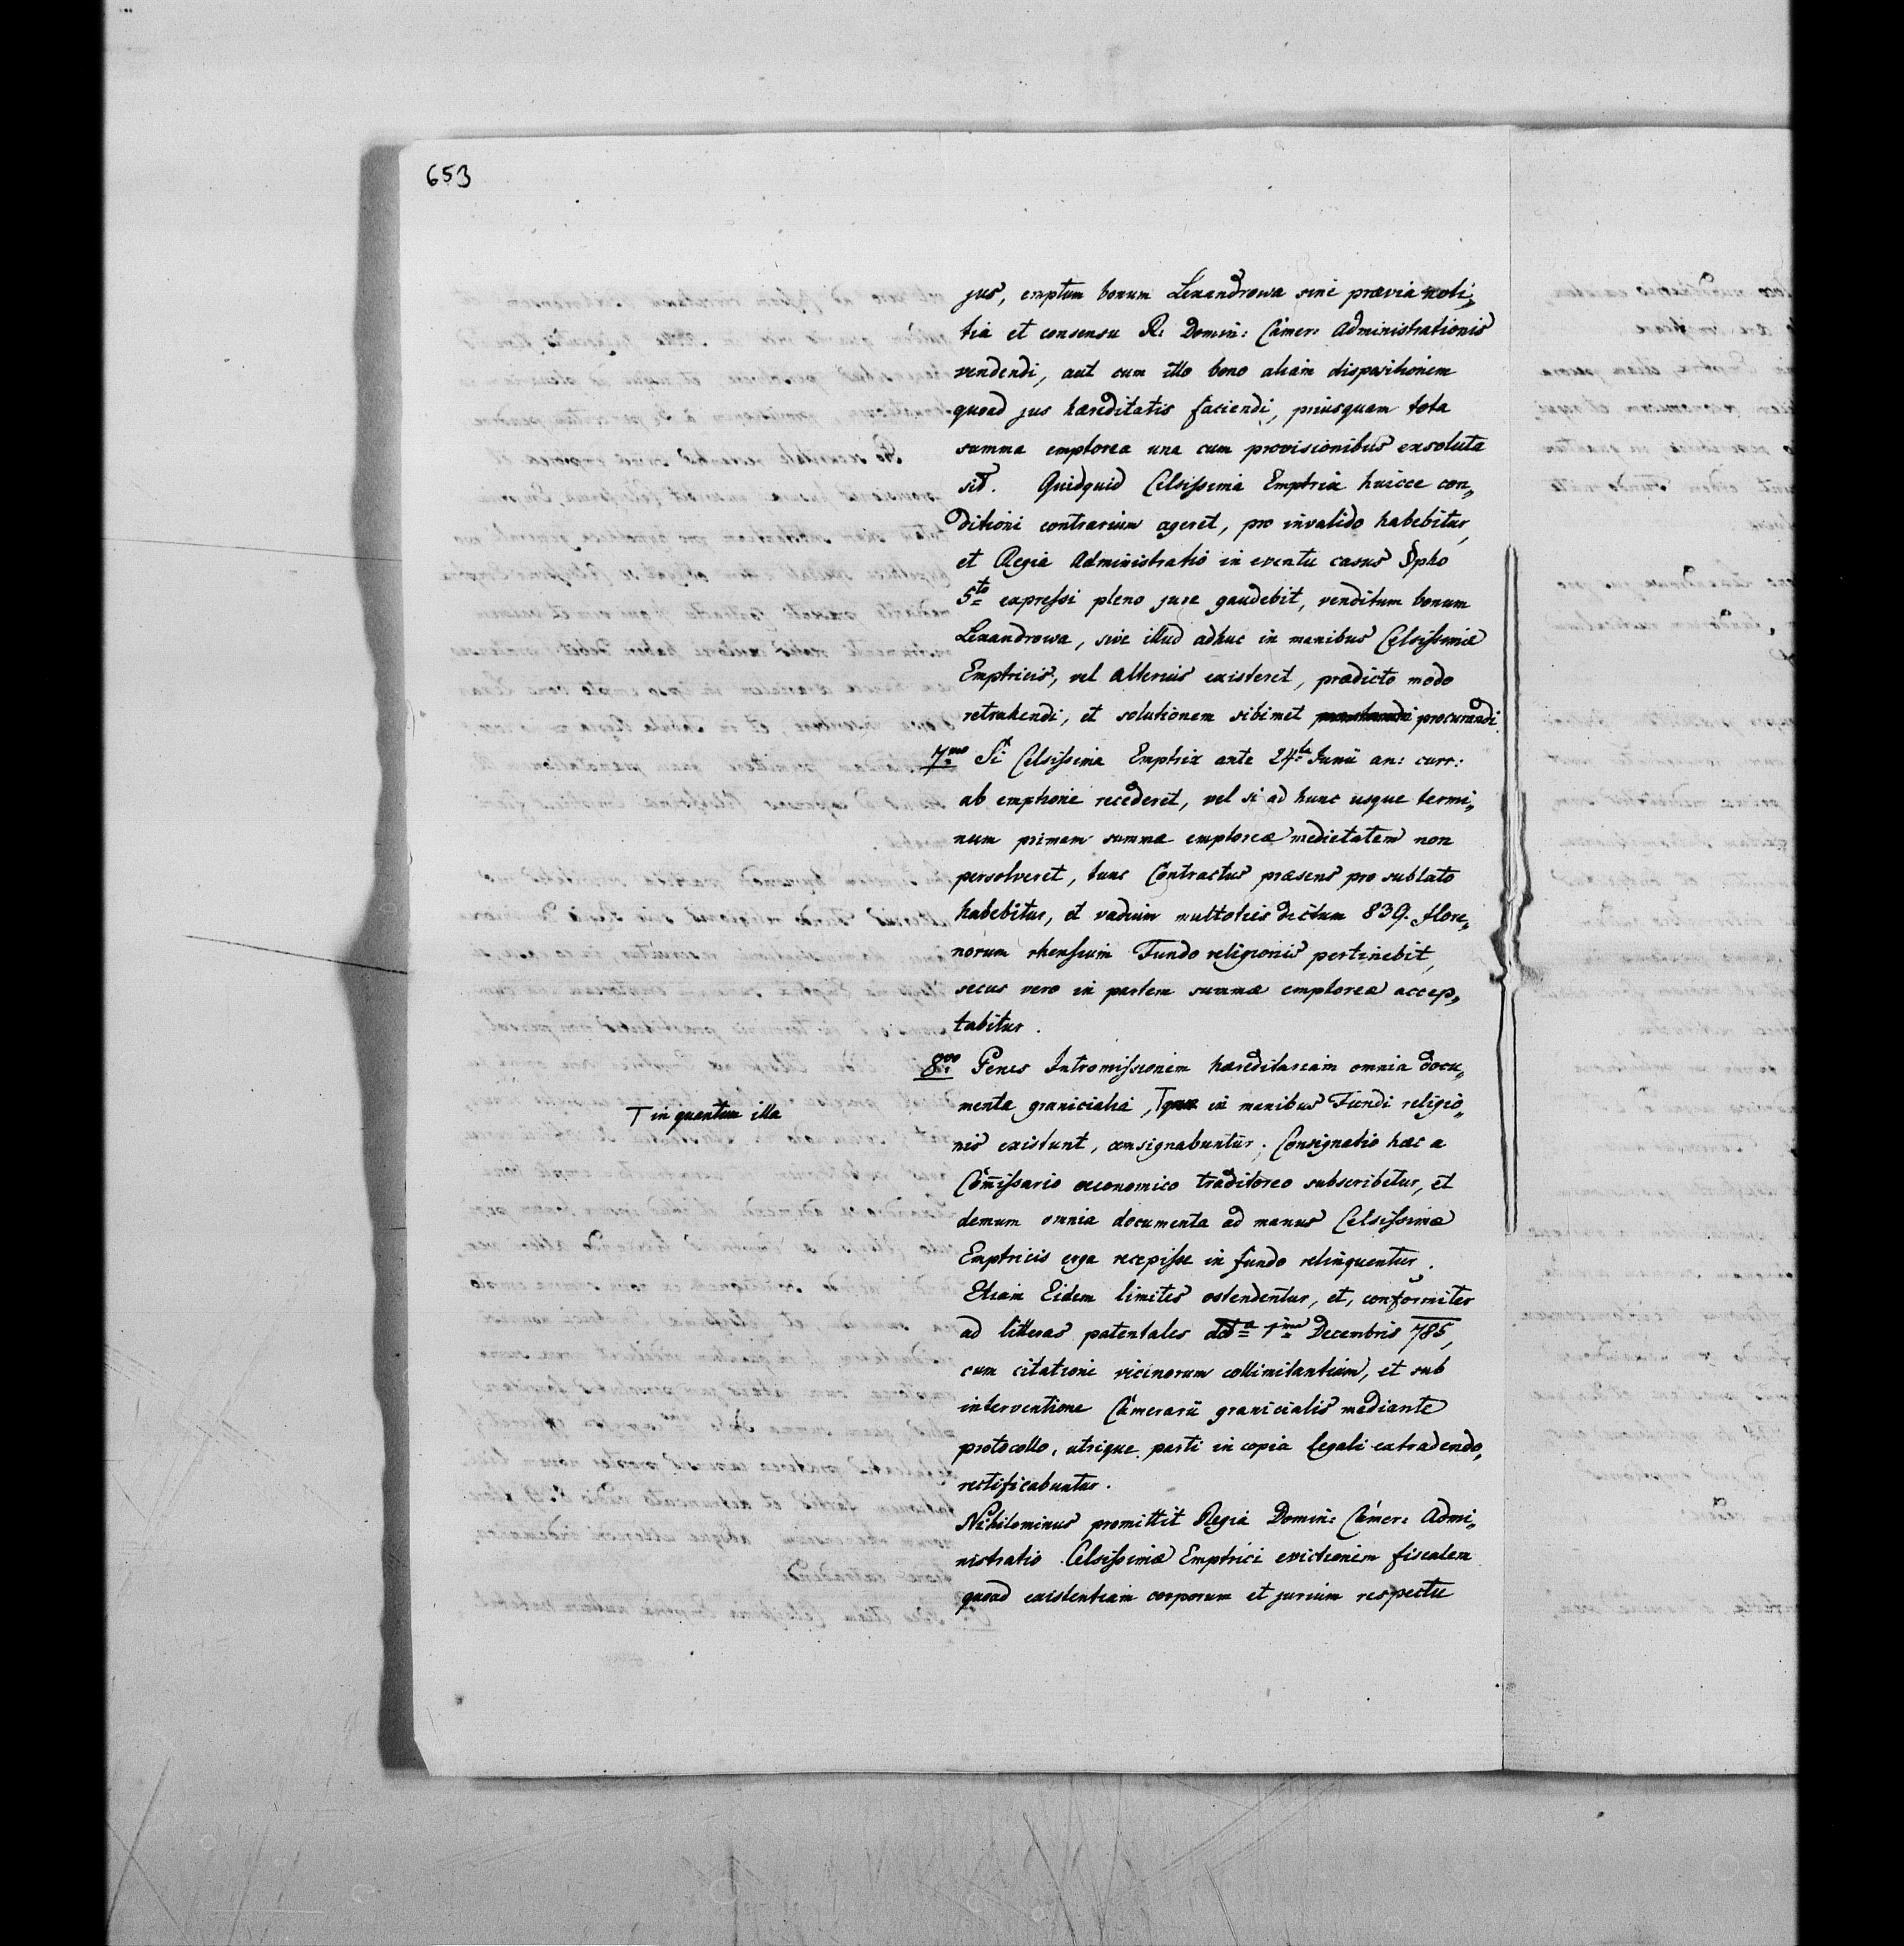 653
jus, emptum bonum Lexandrowa sine prævia noti„
tia et consensu R: Domin: Camer: Administrationis
vendendi, aut cum illo bono aliam dispositionem
quoad jus hæreditatis faciendi, priusquam tota
summa emptorea una cum provisionibus exsoluta
sit. Quidquid Celsissima Emptrix huicce con„
ditioni contrarium ageret, pro invalido habebitur,
et Regia Administratio in eventu casus §pho
5to expressi pleno jure gaudebit, venditum bonum
Lexandrowa, sive illud adhuc in manibus Celsissimæ
Emptricis, vel alterius existeret, prædicto modo
retrahendi, et solutionem sibimet procurandi.
7mo Si Celsissima Emptrix ante 24ta Junii an: curr:
ab emptione recederet, vel si ad hunc usque termi„
num primam summæ emptoreæ medietatem non
persolveret, tunc Contractus præsens pro sublato
habebitur, et vadium multoties dictum 839. flore„
norum rhensium Fundo religionis pertinebit,
secus vero in partem summæ emptoreæ accep„
tabitur.
8vo Penes Intromissionem hæreditariam omnia docu„
menta granicialia, T quæ in manibus Fundi religio„
T in quantum illa
nis existunt, consignabuntur. Consignatio hæc a
Com̅issario œconomico traditoreo subscribetur, et
demum omnia documenta ad manus Celsissimæ
Emptricis erga recepisse in fundo relinquentur.
Etiam Eidem limites ostendentur, et, conformiter
ad litteras patentales ddta 1ma Decembris 785,
cum citatione vicinorum collimitantium, et sub
interventione Camerarii granicialis mediante
protocollo, utrique parti in copia legali extradendo,
rectificabuntur.
Nihilominus promittit Regia Domin: Camer: Admi„
nistratio Celsissimæ Emptrici evictionem fiscalem
quoad existentiam corporum et jurium respectu